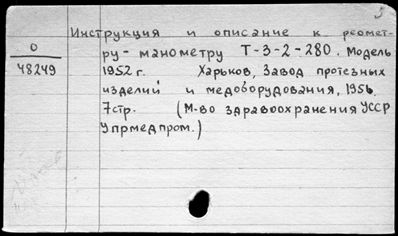 Инструкция и описание к реомет-
ру - манометру Т-3-2-280. Модель
1952 г. Харьков, Завод протезных
изделий и медоборудования, 1956.
7стр. (М-во здравоохранения УССР
Упрмедпром.)
О
48249